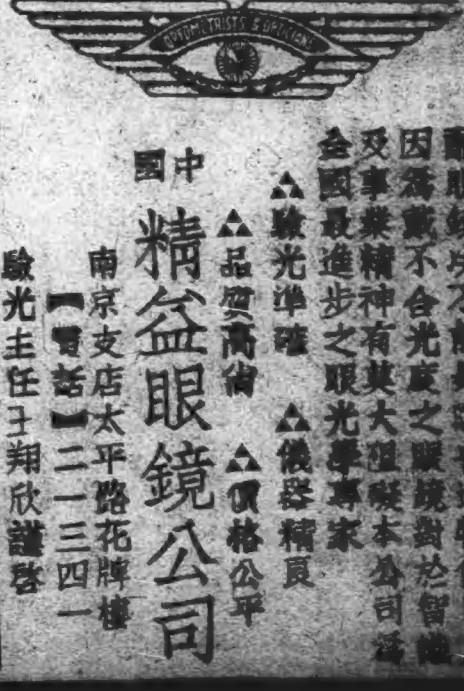 OPTOMETRISTS & OPTICIANS
因為戴不合光度之眼鏡對於智
及事業精神有莫大阻礙本公司為
全國最進步之眼光學專家
驗光準確 儀器精良
品質高尚 價格公平
中國
精益眼鏡公司
南京支店太平路花牌樓
【電話】二一三四一
驗光主任王翔欣謹啓